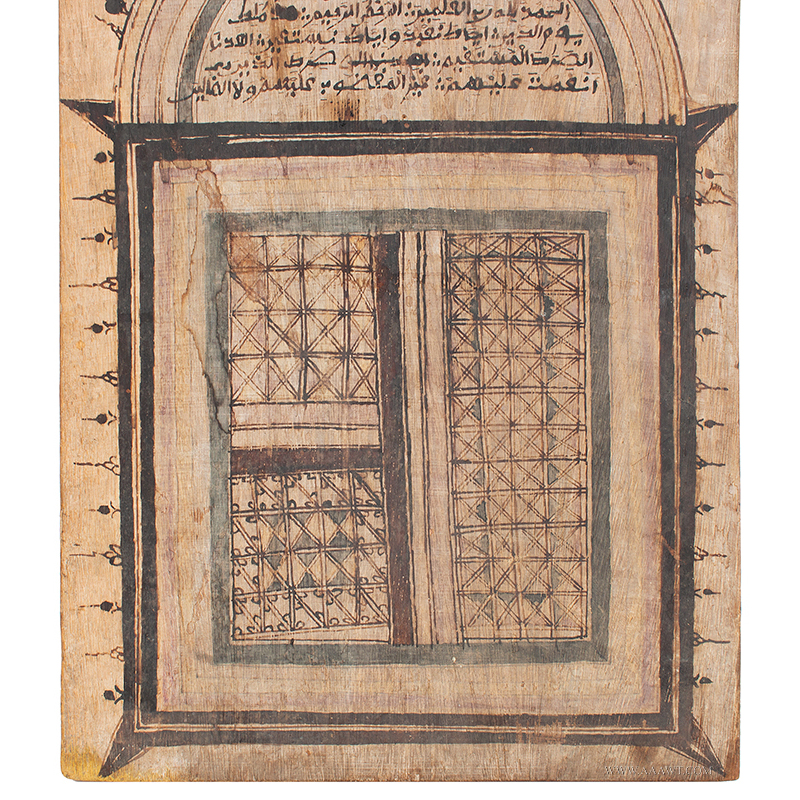 الحمد لله رب العلمين: الرحمن الرحيم: ملك
يوم الدين: اياك نعبد واياك نستعين: اهدنا
الصرط المستقيم: صرط الذين
أنعمت عليهم: غير المغضوب عليهم ولا الضالين